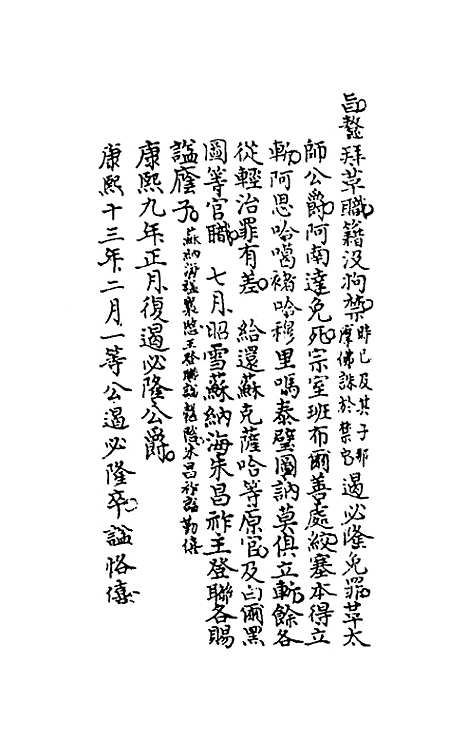 旨鳌拜革職籍没拘禁時巳及其子那摩佛誅於禁宮遏必隆免罪革太
師公爵阿南達免死宗室班布爾善處絞塞本得立
斬阿思哈噶褚哈穆里嗎泰璧圖訥莫俱立斬餘各
從輕治罪有差 給還蘇克薩哈等原官及白爾黑
圖等官職 七月昭雪蘇納海朱昌祚王登聯各賜
諡廕子蘇納海諡襄愍王登聯諡慤愍朱昌祚諡勤僖
康熙九年正月復遏必隆公爵
康熙十三年二月一等公遏必隆卒諡恪僖